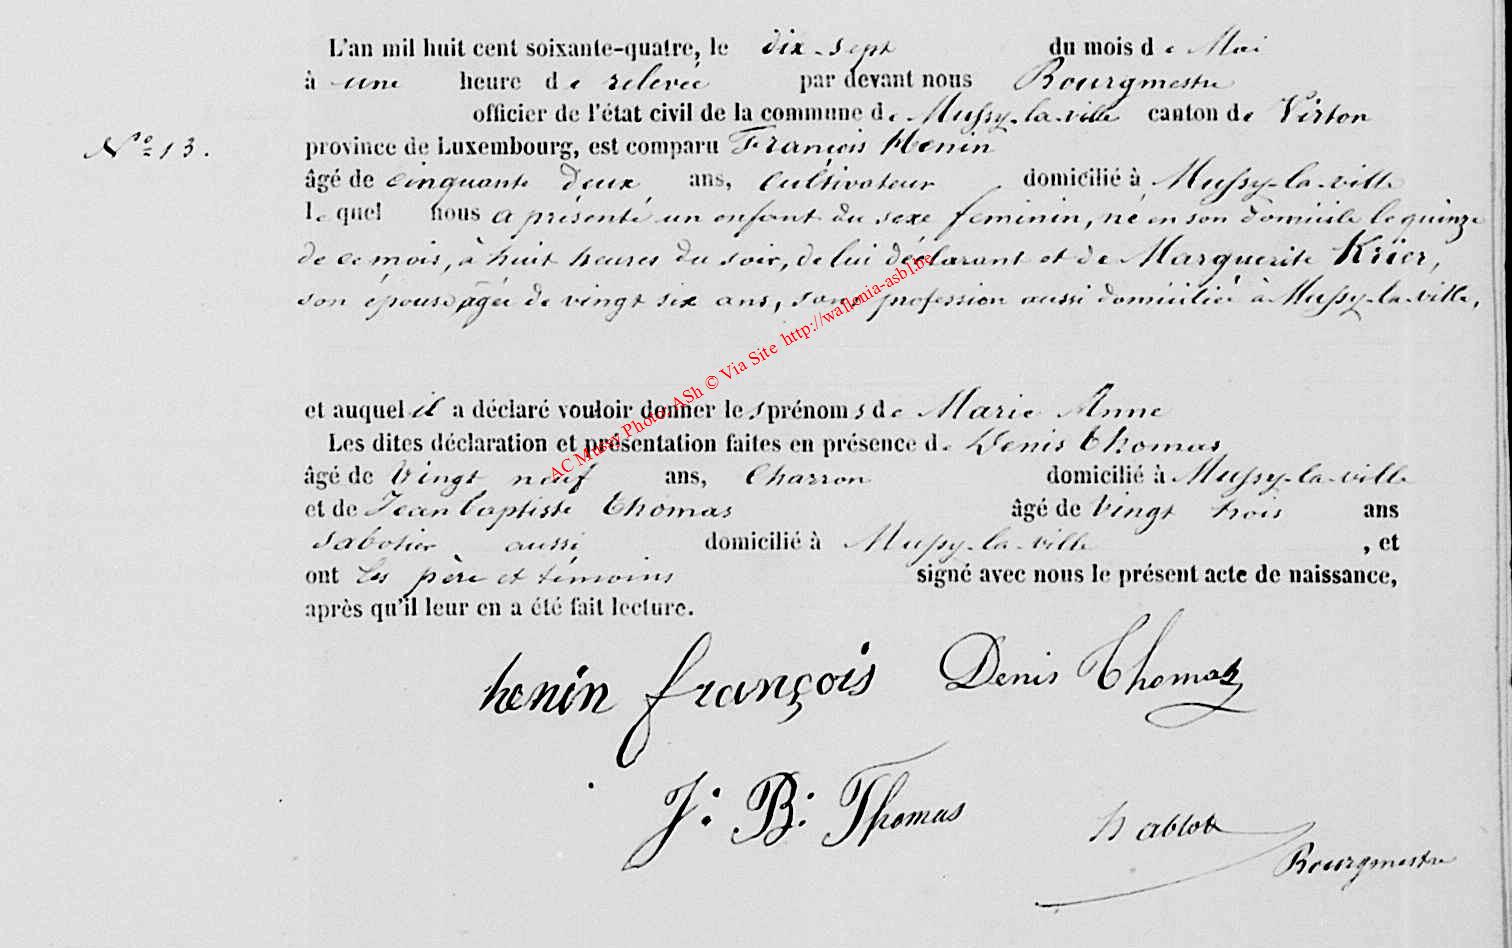 L'an mil huit cent soixante-quatre, le dix-sept du mois de Mai
à une heure de relevée par devant nous Bourgmestre
officier de l'état civil de la commune de Mussy-la-ville canton de Virton
N° 13.
province de Luxembourg, est comparu François Henin
âgé de cinquante deux ans, cultivateur domicilié à Mussy-la-ville
lequel nous a présenté un enfant du sexe féminin, né en son domicile le quinze
de ce mois, à huit heures du soir, de lui déclarant et de Marguerite Krier,
son épouse âgée de vingt six ans, sans profession aussi domiciliée à Mussy-la-ville,
et auquel il a déclaré vouloir donner les prénoms de Marie Anne
Les dites déclaration et présentation faites en présence de Denis Thomas
âgé de vingt neuf ans, charron domicilié à Mussy-la-ville
et de Jean Baptiste Thomas âgé de vingt trois ans
sabotier aussi domicilié à Mussy-la-ville, et
ont les père et témoins signé avec nous le présent acte de naissance,
après qu'il leur en a été fait lecture.
henin françois Denis Thomas
J. B. Thomas
hablot
Bourgmestre
AC Mussy Photo ASh © Via Site http://wallonia-asbl.be